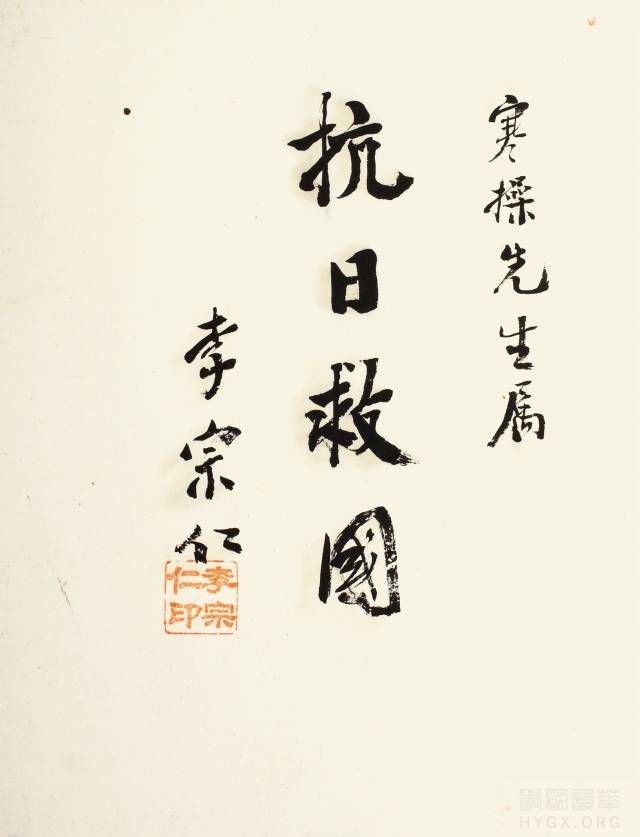 寒操先生属
抗日救國
李宗仁
李宗
仁印
華韻國學
HYGX.ORG